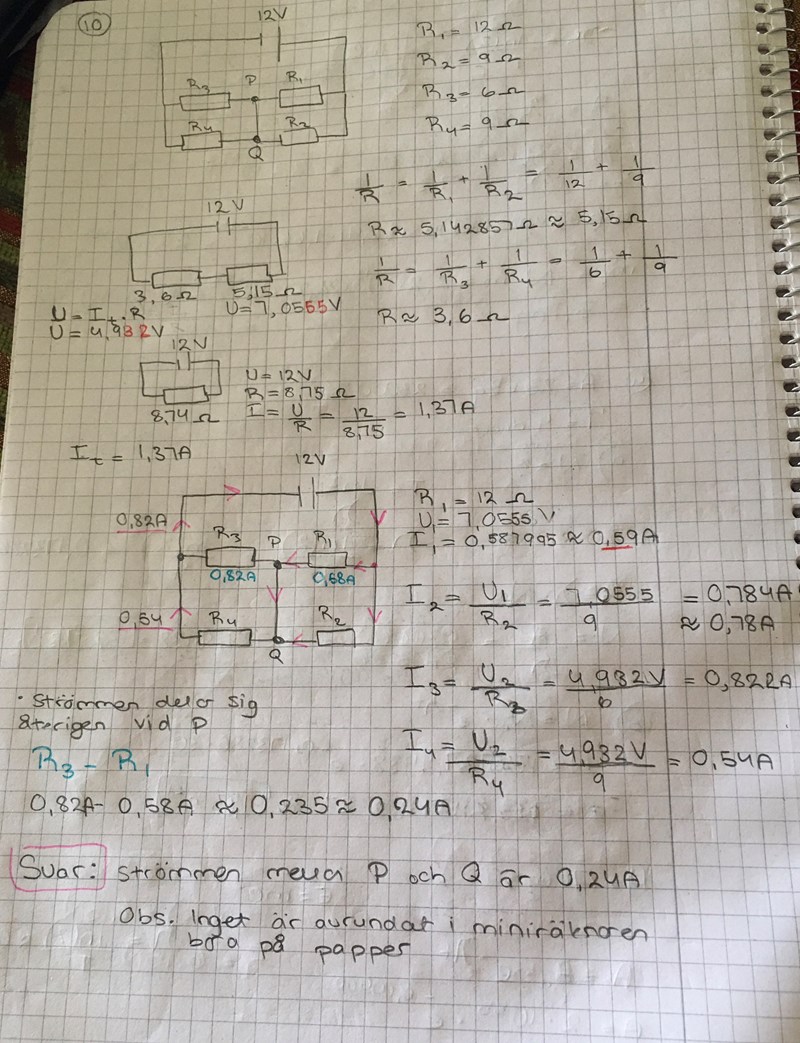 10
12V
R3 P R1
R4 Q R2
R1 = 12 Ω
R2 = 9 Ω
R3 = 6 Ω
R4 = 9 Ω
1/R = 1/R1 + 1/R2 = 1/12 + 1/9
R ≈ 5,142857 Ω ≈ 5,15 Ω
1/R = 1/R3 + 1/R4 = 1/6 + 1/9
R ≈ 3,6 Ω
12V
3,6 Ω 5,15 Ω
U = It · R U = 7,0555 V
U = 4,932 V
12V
8,74 Ω
U = 12V
R = 8,75 Ω
I = U/R = 12/8,75 = 1,37A
It = 1,37A
12V
0,82A
R3 P R1
0,82A 0,58A
0,54 R4 R2
Q
R1 = 12 Ω
U1 = 7,0555 V
I1 = 0,587995 ≈ 0,59A
I2 = U1/R2 = 7,0555/9 = 0,784A
≈ 0,78A
I3 = U2/R3 = 4,932V/6 = 0,822A
I4 = U2/R4 = 4,932V/9 = 0,54A
· Strömmen delar sig
återigen vid P
R3 - R1
0,82A - 0,58A ≈ 0,235 ≈ 0,24A
Svar: strömmen mellan P och Q är 0,24A
Obs. Inget är avrundat i miniräknaren
bara på papper